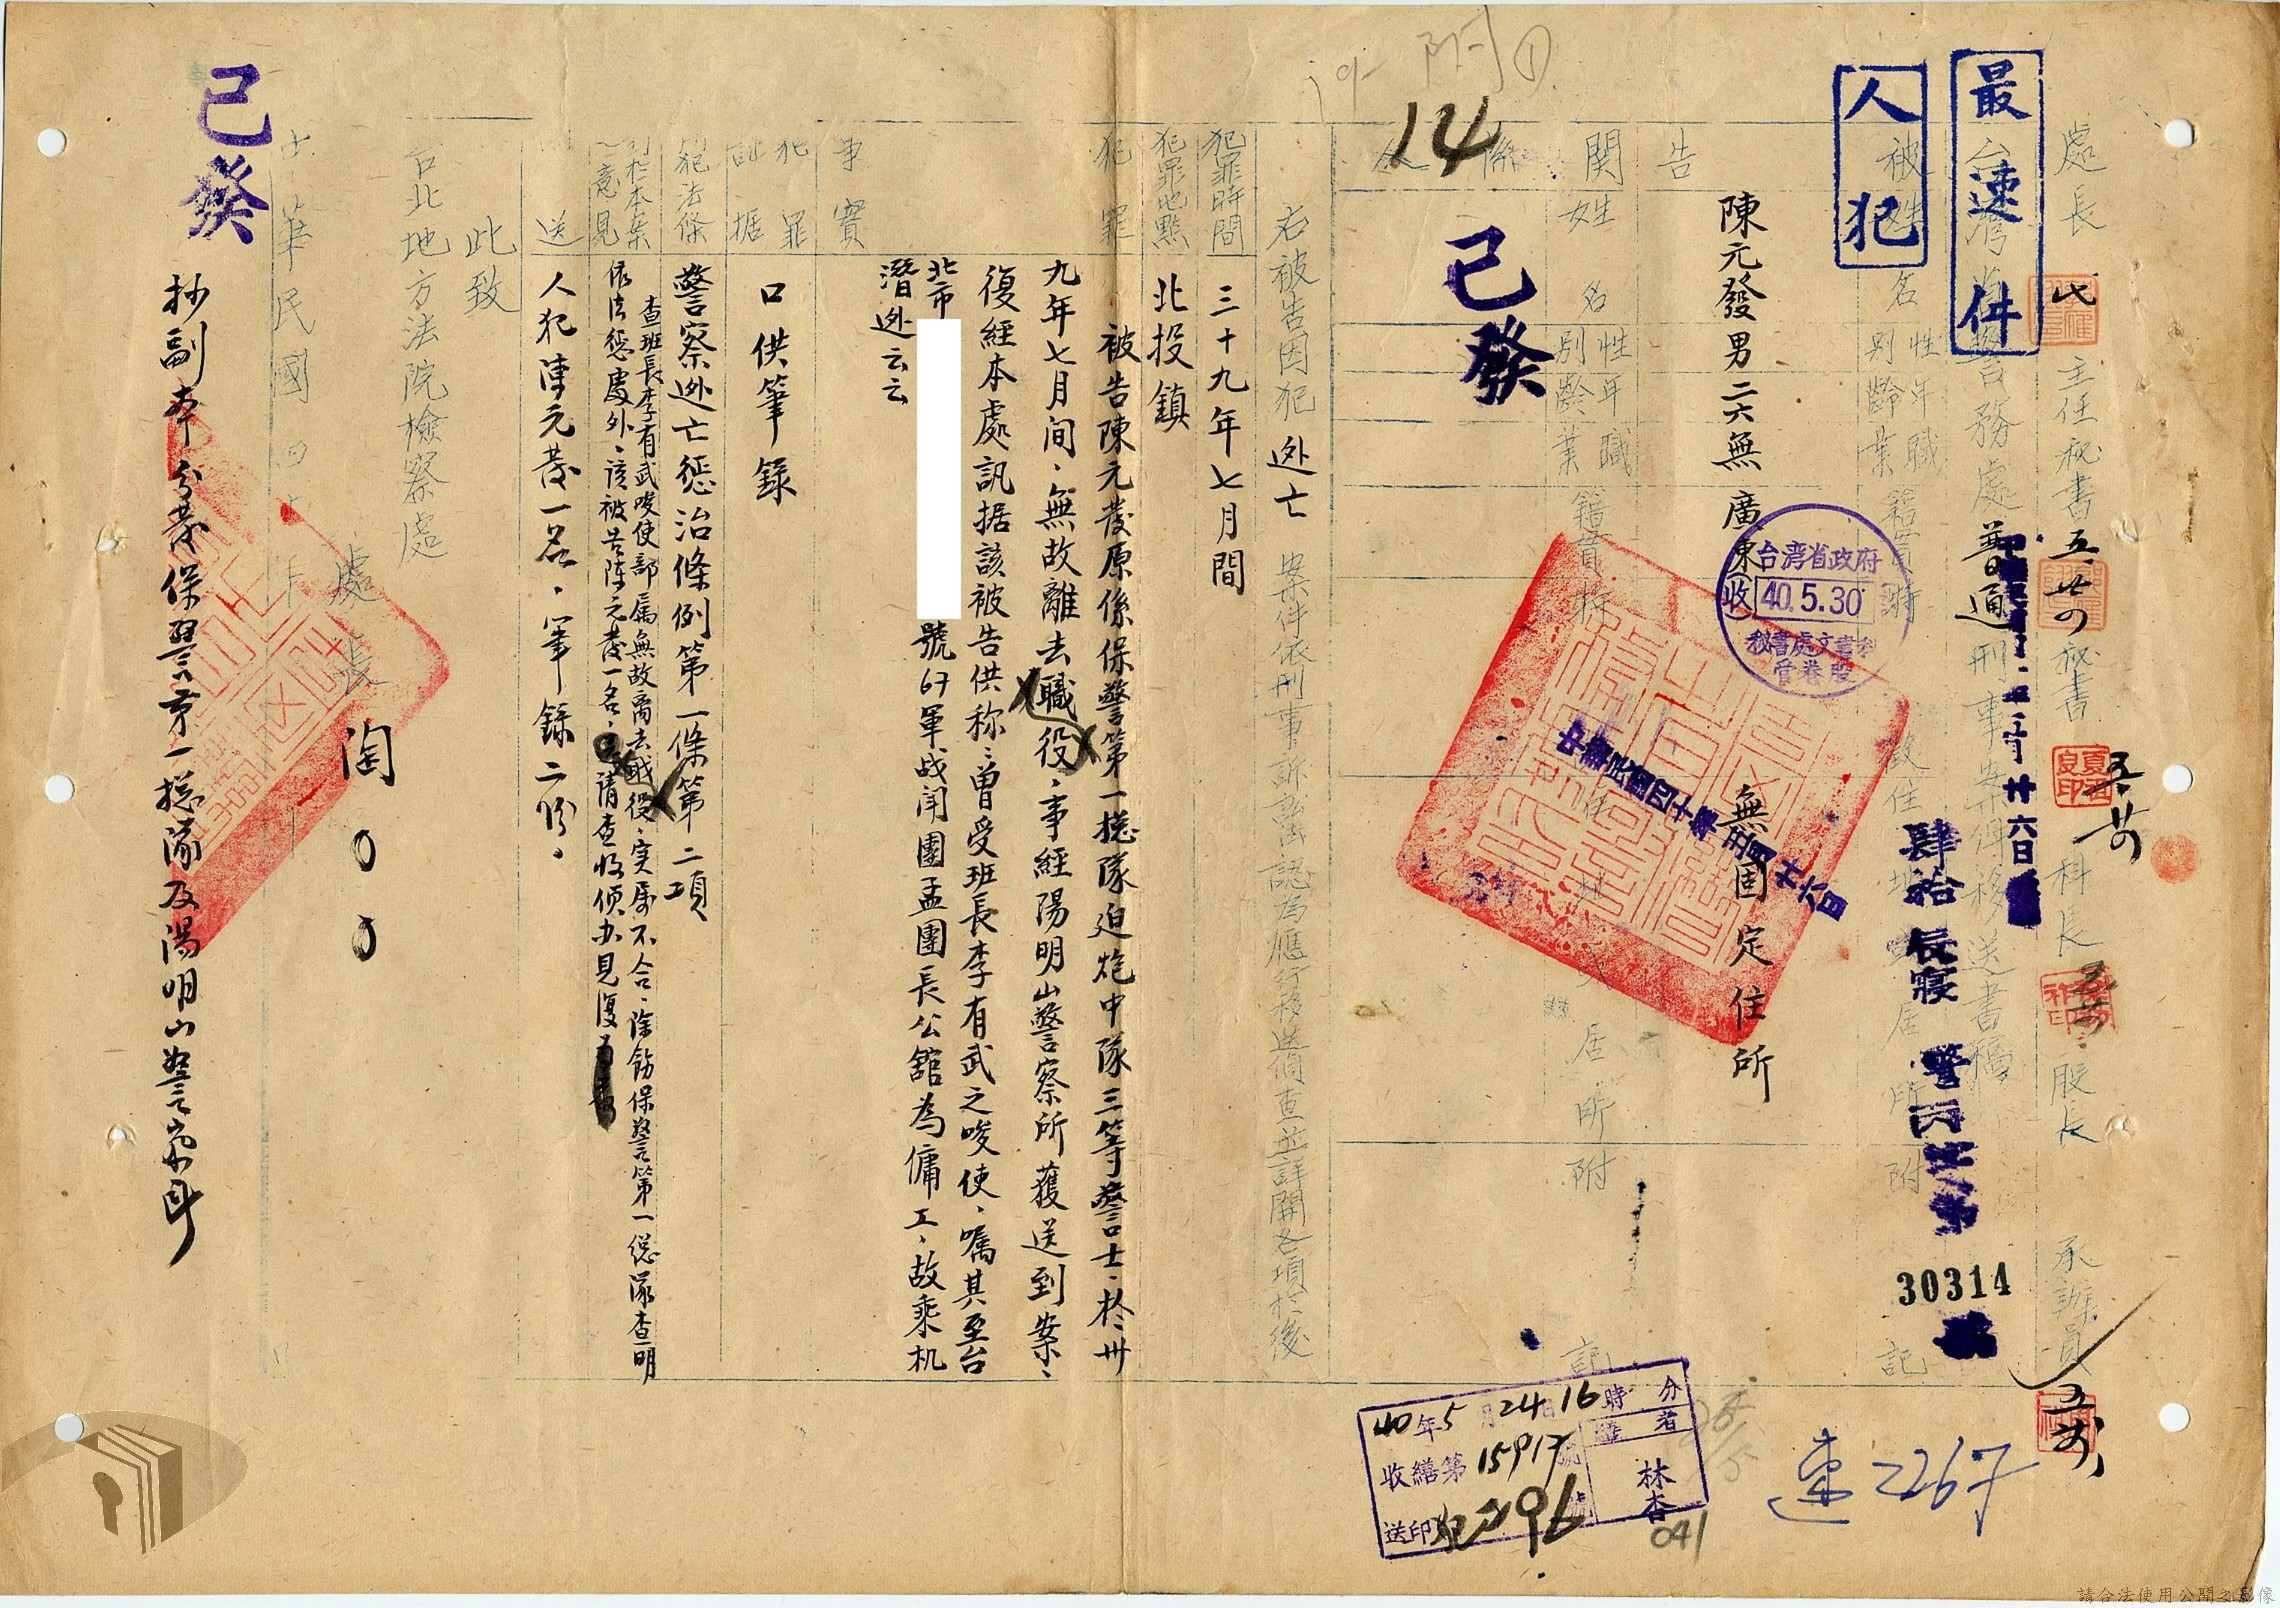 附①
14
最速件
人犯
處長 主任秘書 五廿四 秘書 五廿四 科長 股長 承辦員
台灣省警務處普通刑事案件移送書稿
中華民國四十年五月廿六日
肆拾 辰寢 警丙 第 30314 號
被告
姓名 性別 年齡 職業 籍貫 特 住址 居所 附記
陳元發 男 二六 無 廣東 無固定住所
台灣省政府
收 40.5.30
秘書處文書科
管卷股
關係人
姓名 性別 年齡 職業 籍貫 居所 附記
已發
中華民國四十年五月廿六日
右被告因犯 逃亡 案件依刑事訴訟法認為應行移送偵查並詳開各項於後
犯罪時間 三十九年七月間
犯罪地點 北投鎮
犯罪事實
被告陳元發原係保警第一總隊迫炮中隊三等警士、於卅
九年七月间、無故離去職役、事經陽明山警察所獲送到案、
復經本處訊据該被告供称:曾受班長李有武之唆使、囑其至台
北市 號67軍战闬團孟團長公舘為傭工、故乘机
潛逃云云
犯罪証据 口供筆錄
所犯法條 警察逃亡懲治條例第一條第二項
對於本案之意見
查班長李有武唆使部属無故离去職役、实属不合、除飭保警第一總隊查明
依法懲處外、該被告陳元發一名、請查收偵办見復
附送 人犯陳元發一名、筆錄二份、
此致
台北地方法院檢察處
處長 陶〇〇
中華民國四十年 月 日
抄副本分發保警第一總隊及陽明山警察所
已發
40年5月24日16時 分
收繕第15917號
送印 296
林杏
041
速2267
請合法使用公開之影像